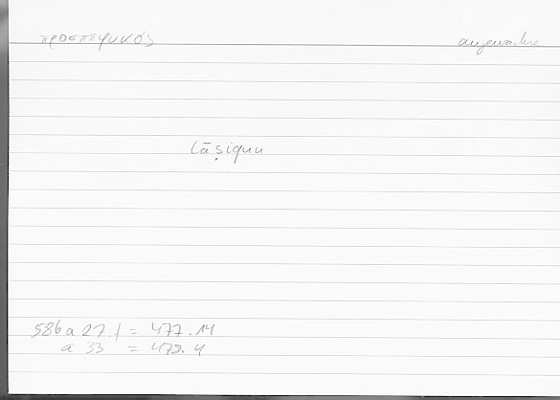 προσπεφυκός angewachse
lāṣiqun
586a 27.f = 477.14
a 33 = 479.4